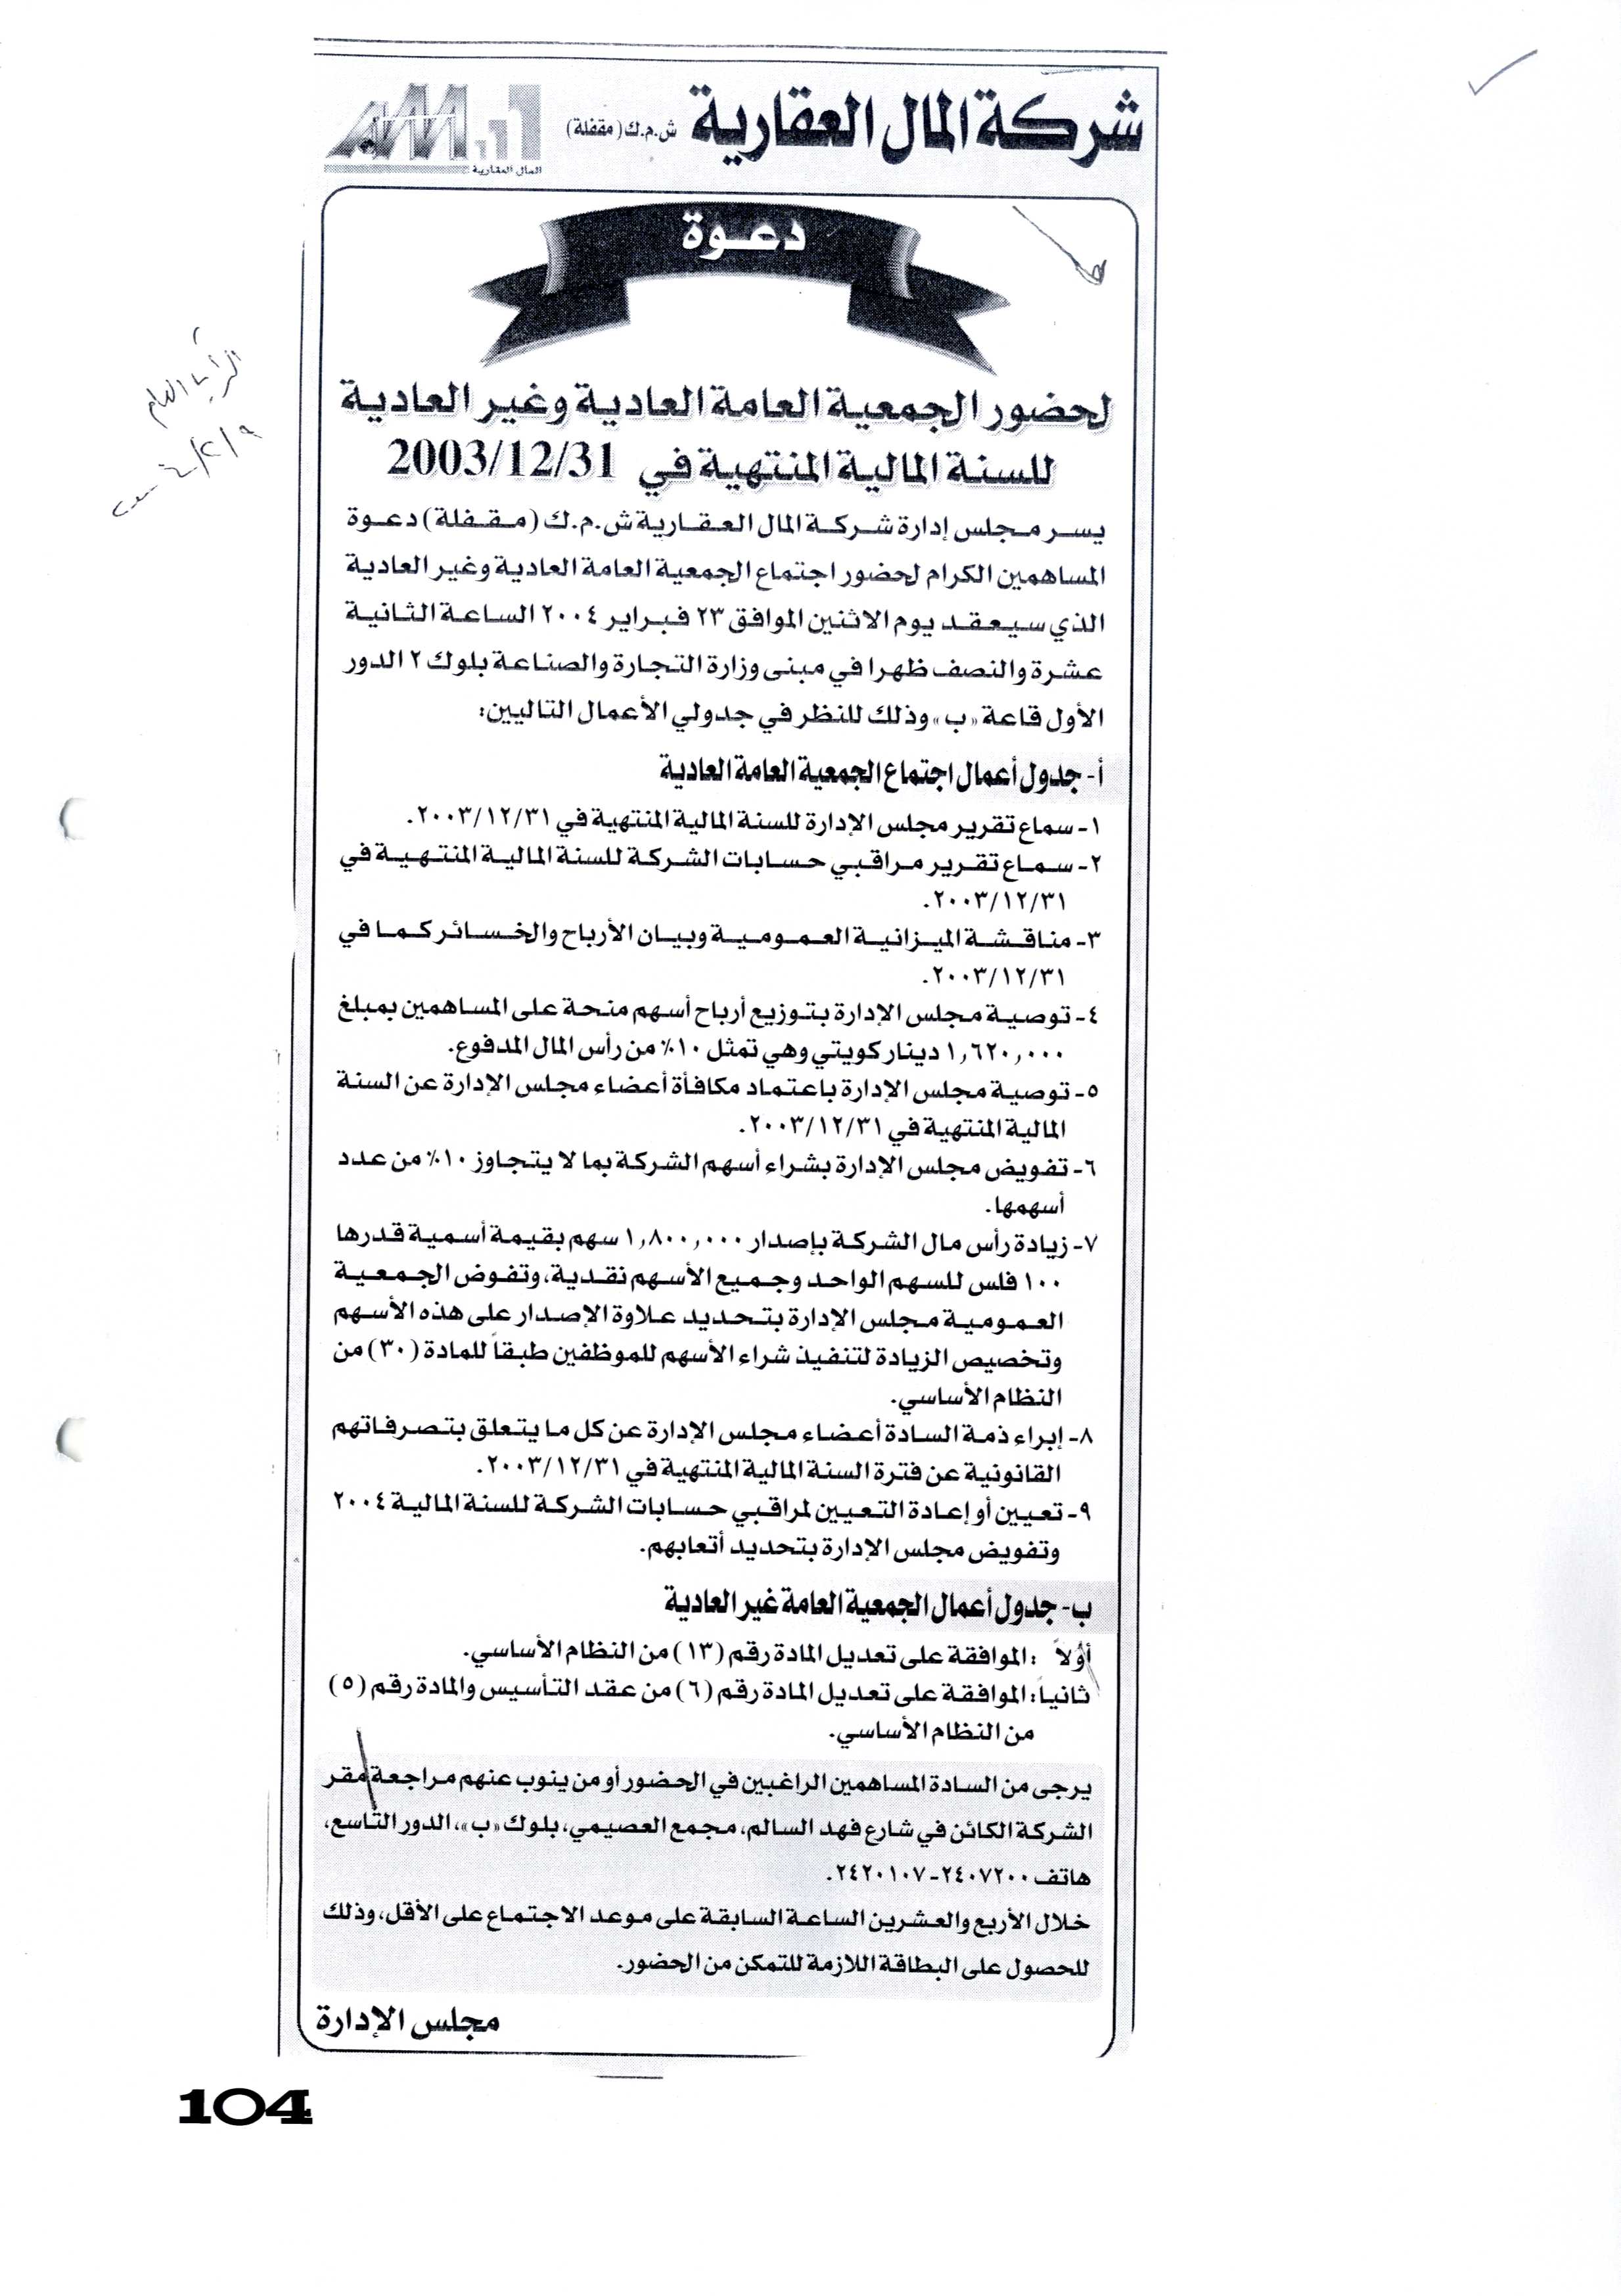 شركة المال العقارية ش.م.ك (مقفلة)
المال العقارية
دعوة
لحضور الجمعية العامة العادية وغير العادية
للسنة المالية المنتهية في 2003/12/31
يسر مجلس إدارة شركة المال العقارية ش.م.ك (مقفلة) دعوة
المساهمين الكرام لحضور اجتماع الجمعية العامة العادية وغير العادية
الذي سيعقد يوم الاثنين الموافق ٢٣ فبراير ٢٠٠٤ الساعة الثانية
عشرة والنصف ظهرا في مبنى وزارة التجارة والصناعة بلوك ٢ الدور
الأول قاعة «ب» وذلك للنظر في جدولي الأعمال التاليين:
أ- جدول أعمال اجتماع الجمعية العامة العادية
١- سماع تقرير مجلس الإدارة للسنة المالية المنتهية في ٢٠٠٣/١٢/٣١.
٢- سماع تقرير مراقبي حسابات الشركة للسنة المالية المنتهية في
٢٠٠٣/١٢/٣١.
٣- مناقشة الميزانية العمومية وبيان الأرباح والخسائر كما في
٢٠٠٣/١٢/٣١.
٤- توصية مجلس الإدارة بتوزيع أرباح أسهم منحة على المساهمين بمبلغ
١,٦٢٠,٠٠٠ دينار كويتي وهي تمثل ١٠٪ من رأس المال المدفوع.
٥- توصية مجلس الإدارة باعتماد مكافأة أعضاء مجلس الإدارة عن السنة
المالية المنتهية في ٢٠٠٣/١٢/٣١.
٦- تفويض مجلس الإدارة بشراء أسهم الشركة بما لا يتجاوز ١٠٪ من عدد
أسهمها.
٧- زيادة رأس مال الشركة بإصدار ١,٨٠٠,٠٠٠ سهم بقيمة أسمية قدرها
١٠٠ فلس للسهم الواحد وجميع الأسهم نقدية، وتفوض الجمعية
العمومية مجلس الإدارة بتحديد علاوة الإصدار على هذه الأسهم
وتخصيص الزيادة لتنفيذ شراء الأسهم للموظفين طبقاً للمادة (٣٠) من
النظام الأساسي.
٨- إبراء ذمة السادة أعضاء مجلس الإدارة عن كل ما يتعلق بتصرفاتهم
القانونية عن فترة السنة المالية المنتهية في ٢٠٠٣/١٢/٣١.
٩- تعيين أو إعادة التعيين لمراقبي حسابات الشركة للسنة المالية ٢٠٠٤
وتفويض مجلس الإدارة بتحديد أتعابهم.
ب- جدول أعمال الجمعية العامة غير العادية
أولاً : الموافقة على تعديل المادة رقم (١٣) من النظام الأساسي.
ثانياً: الموافقة على تعديل المادة رقم (٦) من عقد التأسيس والمادة رقم (٥)
من النظام الأساسي.
يرجى من السادة المساهمين الراغبين في الحضور أو من ينوب عنهم مراجعة مقر
الشركة الكائن في شارع فهد السالم، مجمع العصيمي، بلوك «ب»، الدور التاسع،
هاتف ٢٤٠٧٢٠٠-٢٤٢٠١٠٧.
خلال الأربع والعشرين الساعة السابقة على موعد الاجتماع على الأقل، وذلك
للحصول على البطاقة اللازمة للتمكن من الحضور.
مجلس الإدارة
104